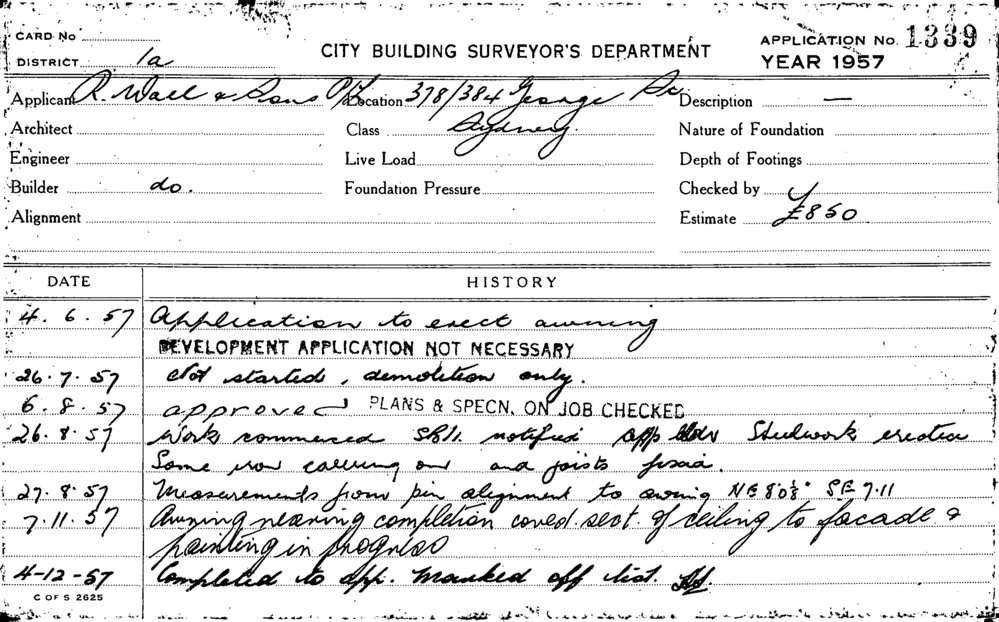 CARD No
CITY BUILDING SURVEYOR'S DEPARTMENT
APPLICATION No. 1339
DISTRICT 1a
YEAR 1957
Applicant R. Wall & Sons P/L Location 378/384 George St Description —
Architect Class Sydney. Nature of Foundation
Engineer Live Load Depth of Footings
Builder do. Foundation Pressure Checked by
Alignment Estimate £850
DATE HISTORY
4. 6. 57 Application to erect awning
DEVELOPMENT APPLICATION NOT NECESSARY
26. 7. 57 Not started, demolition only.
6. 8. 57 approved PLANS & SPECN. ON JOB CHECKED
26. 8. 57 Work commenced notified Steelwork erected
Some iron and joists fascia.
27. 8. 57 Measurements from pin alignment to awning NE 8'0⅛" SE 7.11
7. 11. 57 Awning nearing completion coved sect. of ceiling to facade &
painting in progress
4-12-57 Completed to app. Marked off list.
C OF S 2625